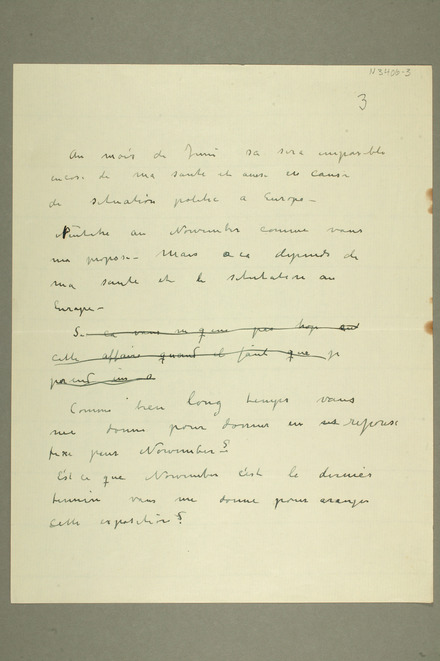 N 3406-3
3
Au mois de Juni sa sera imposible
de ma sante et ausi en cause
de situation politic a Europe -
Peutetre au November comme vous
ma propose. Mais ca depends de
ma sante et le situation au
Europe -
Si ca vous
cette affaire quand il faut que je
Comme bien long temps vous
me donne pour donner un reponse
fixe pour November?
Est ce que November c'est le dernier
termin vous me donne pour aranger
cette exposition?